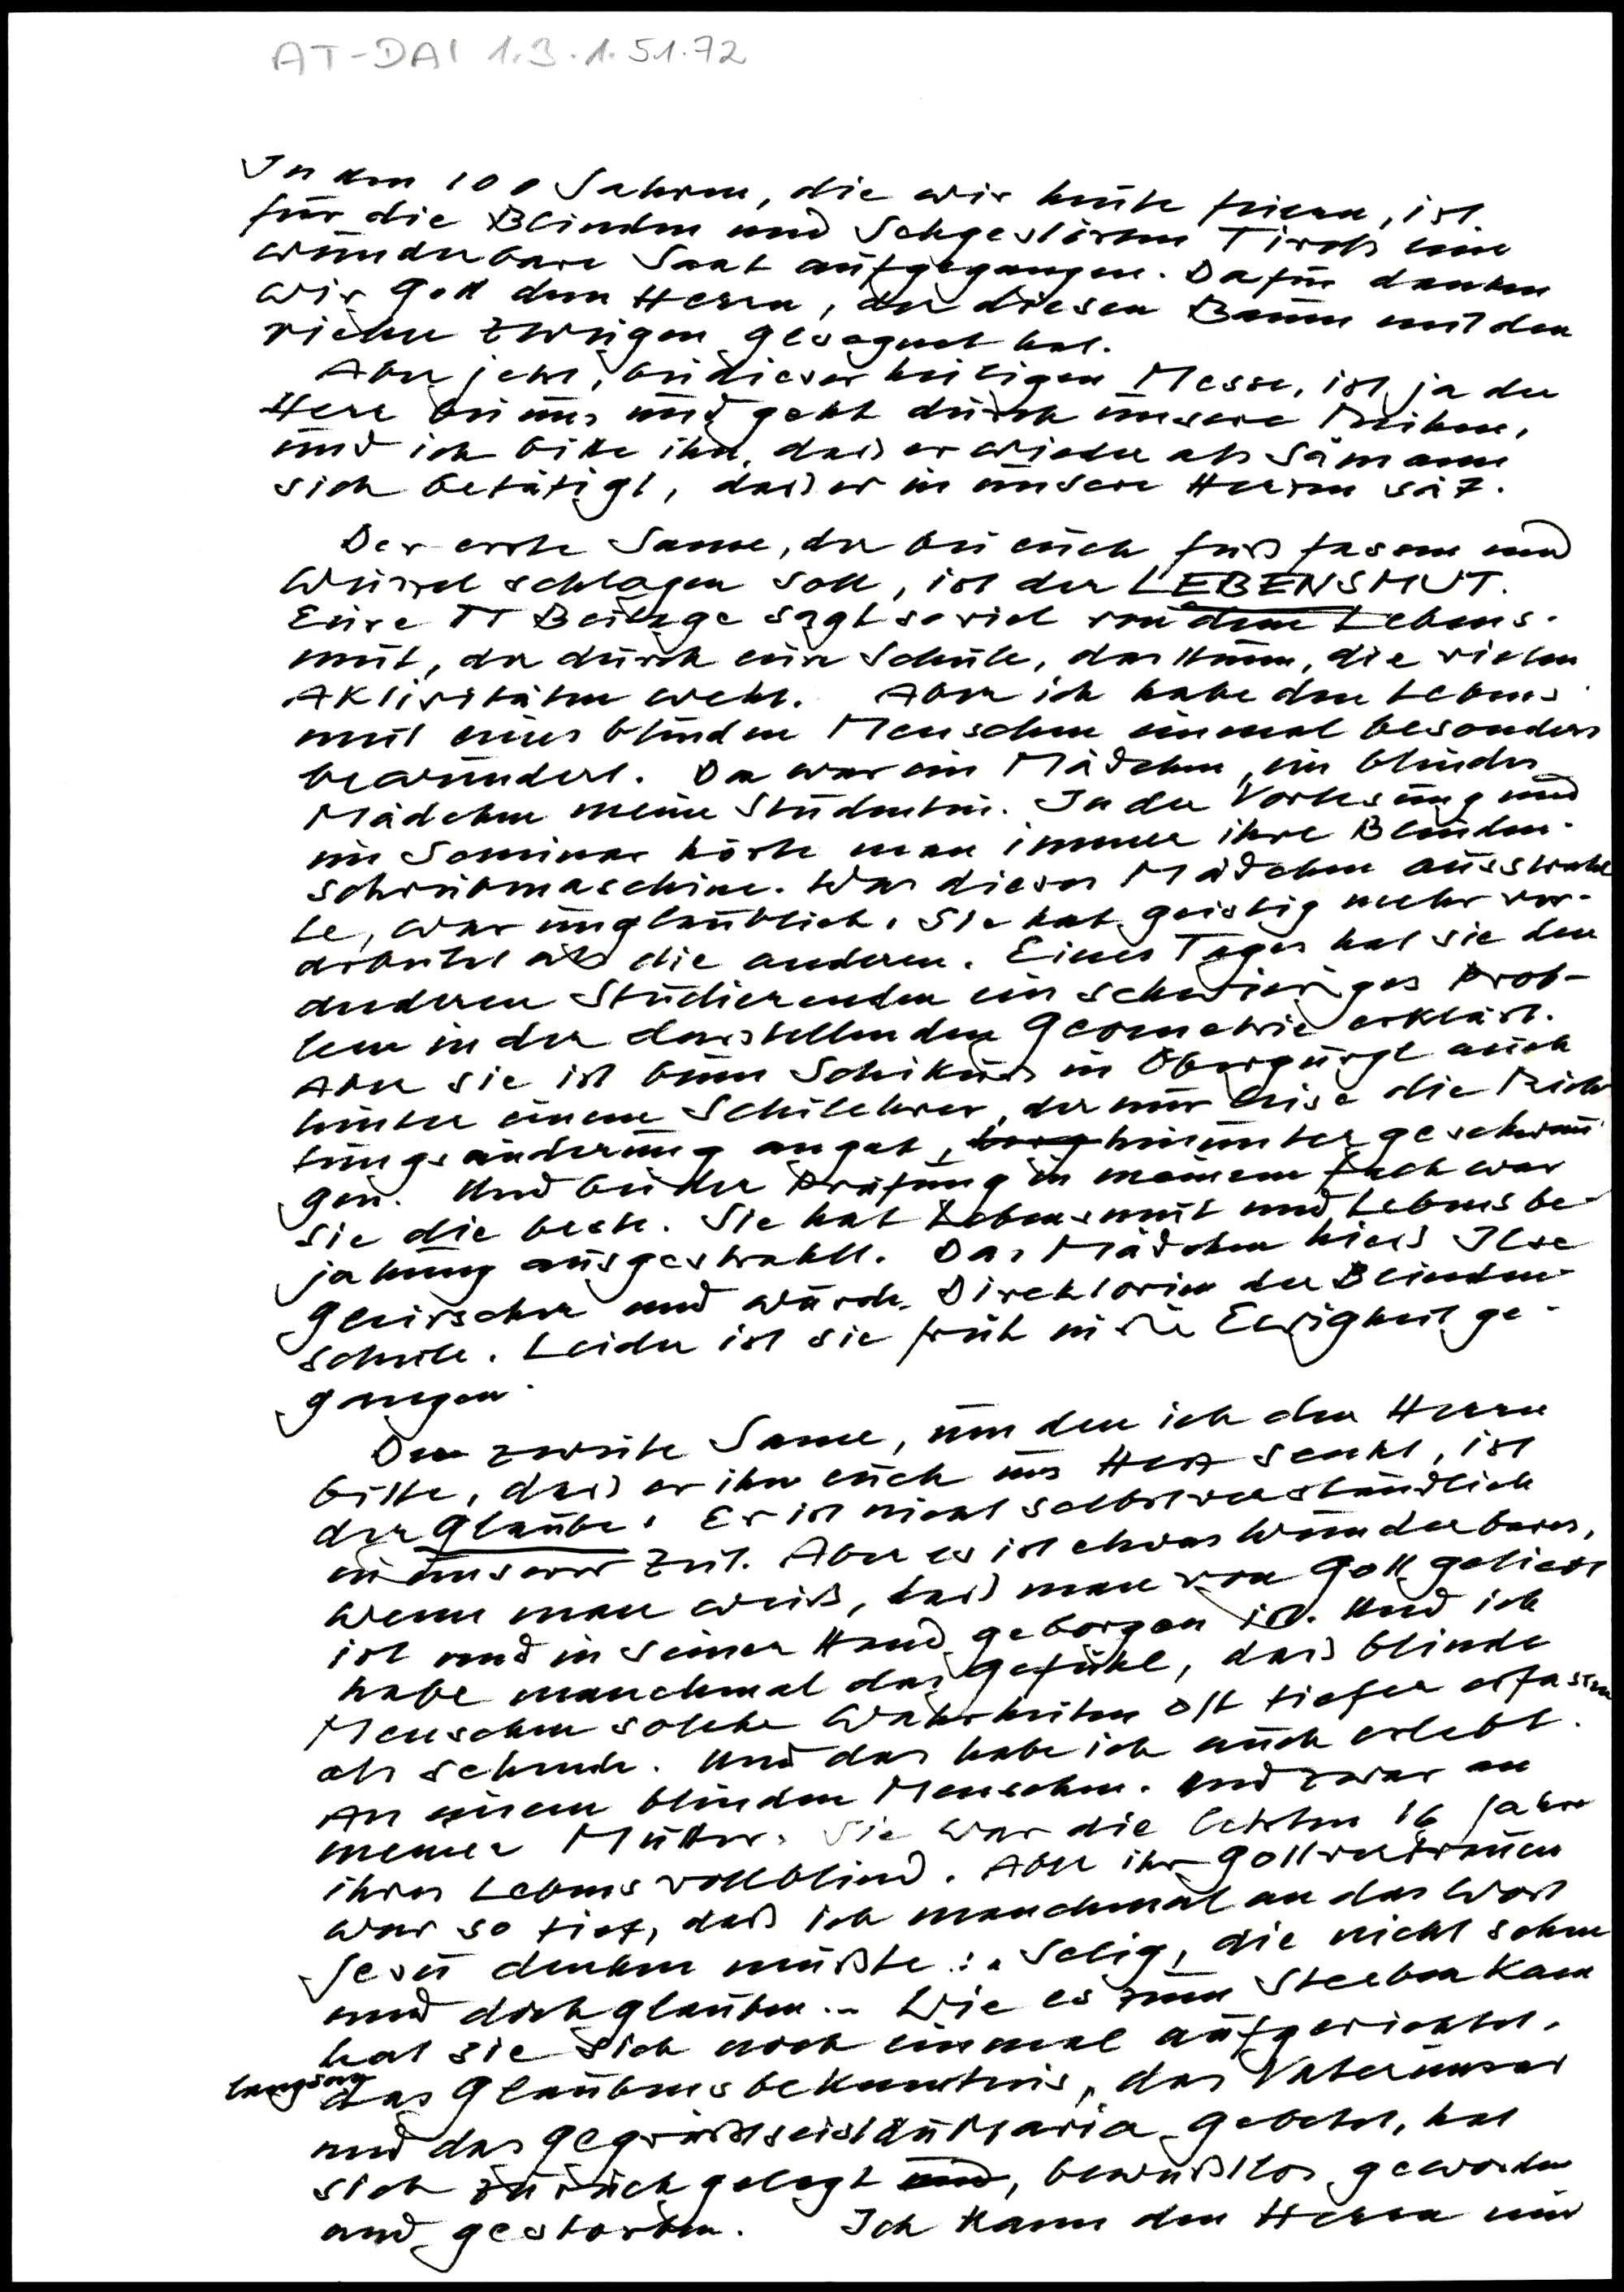 AT-DAI 1.3.1.51.72
In den 100 Jahren, die wir heute feiern, ist
für die Blinden und Sehgestörten Tirols eine
wunderbare Saat aufgegangen. Dafür danken
wir Gott dem Herrn, der diesen Baum mit den
vielen Zweigen gesegnet hat.
Aber jetzt, bei dieser heiligen Messe, ist ja der
Herr bei uns und geht durch unsere Reihen,
und ich bitte ihn, dass er wieder als Sämann
sich betätigt, dass er in unsere Herzen sät.
Der erste Same, der bei euch fuß fassen und
Wurzel schlagen soll, ist der LEBENSMUT.
Eure TT Beilage sagt so viel von dem Lebens-
mut, der durch eure Schule, das Haus, die vielen
Aktivitäten weht. Aber ich habe den Lebens
mut eines blinden Menschen einmal besonders
bewundert. Da war ein Mädchen, ein blindes
Mädchen meine Studentin. In der Vorlesung und
im Seminar hörte man immer ihre Blinden-
schreibmaschine. Was dieses Mädchen ausstrahl
te, war unglaublich. Sie hat geistig mehr ver-
arbeitet als die anderen. Eines Tages hat sie den
anderen Studierenden ein schwieriges Prob-
lem in der darstellenden Geometrie erklärt.
Aber sie ist beim Schikurs in Obergurgl auch
hinter einem Schilehrer, der nur leise die Rich
tungsänderung angab, hinunter geschwun
gen. Und bei der Prüfung in meinem Fach war
sie die beste. Sie hat Lebensmut und Lebensbe-
jahung ausgestrahlt. Das Mädchen hiess Ilse
Gleirscher und wurde Direktorin der Blinden-
schule. Leider ist sie früh in die Ewigkeit ge-
gangen.
Der zweite Same, um den ich den Herrn
bitte, dass er ihn euch ins Herz senkt, ist
der Glaube. Er ist nicht selbstverständlich
in unserer Zeit. Aber es ist etwas Wunderbares,
wenn man weiß, dass man von Gott geliebt
ist und in seiner Hand geborgen ist. Und ich
habe manchmal das Gefühl, dass blinde
Menschen solche Wahrheiten oft tiefer erfassen
als sehende. Und das habe ich auch erlebt.
An einem blinden Menschen. Und zwar an
meiner Mutter. Sie war die letzten 16 Jahre
ihres Lebens vollblind. Aber ihr Gottvertrauen
war so tief, daß ich manchmal an das Wort
Jesu denken mußte: "Selig, die nicht sehen
und doch glauben." Wie es zum Sterben kam
hat sie sich noch einmal aufgerichtet,
langsam das Glaubensbekenntnis, das Vaterunser
und das Gegrüßtseistdu Maria gebetet, hat
sich zurückgelegt und, bewußtlos geworden
und gestorben. Ich kann den Herrn nur